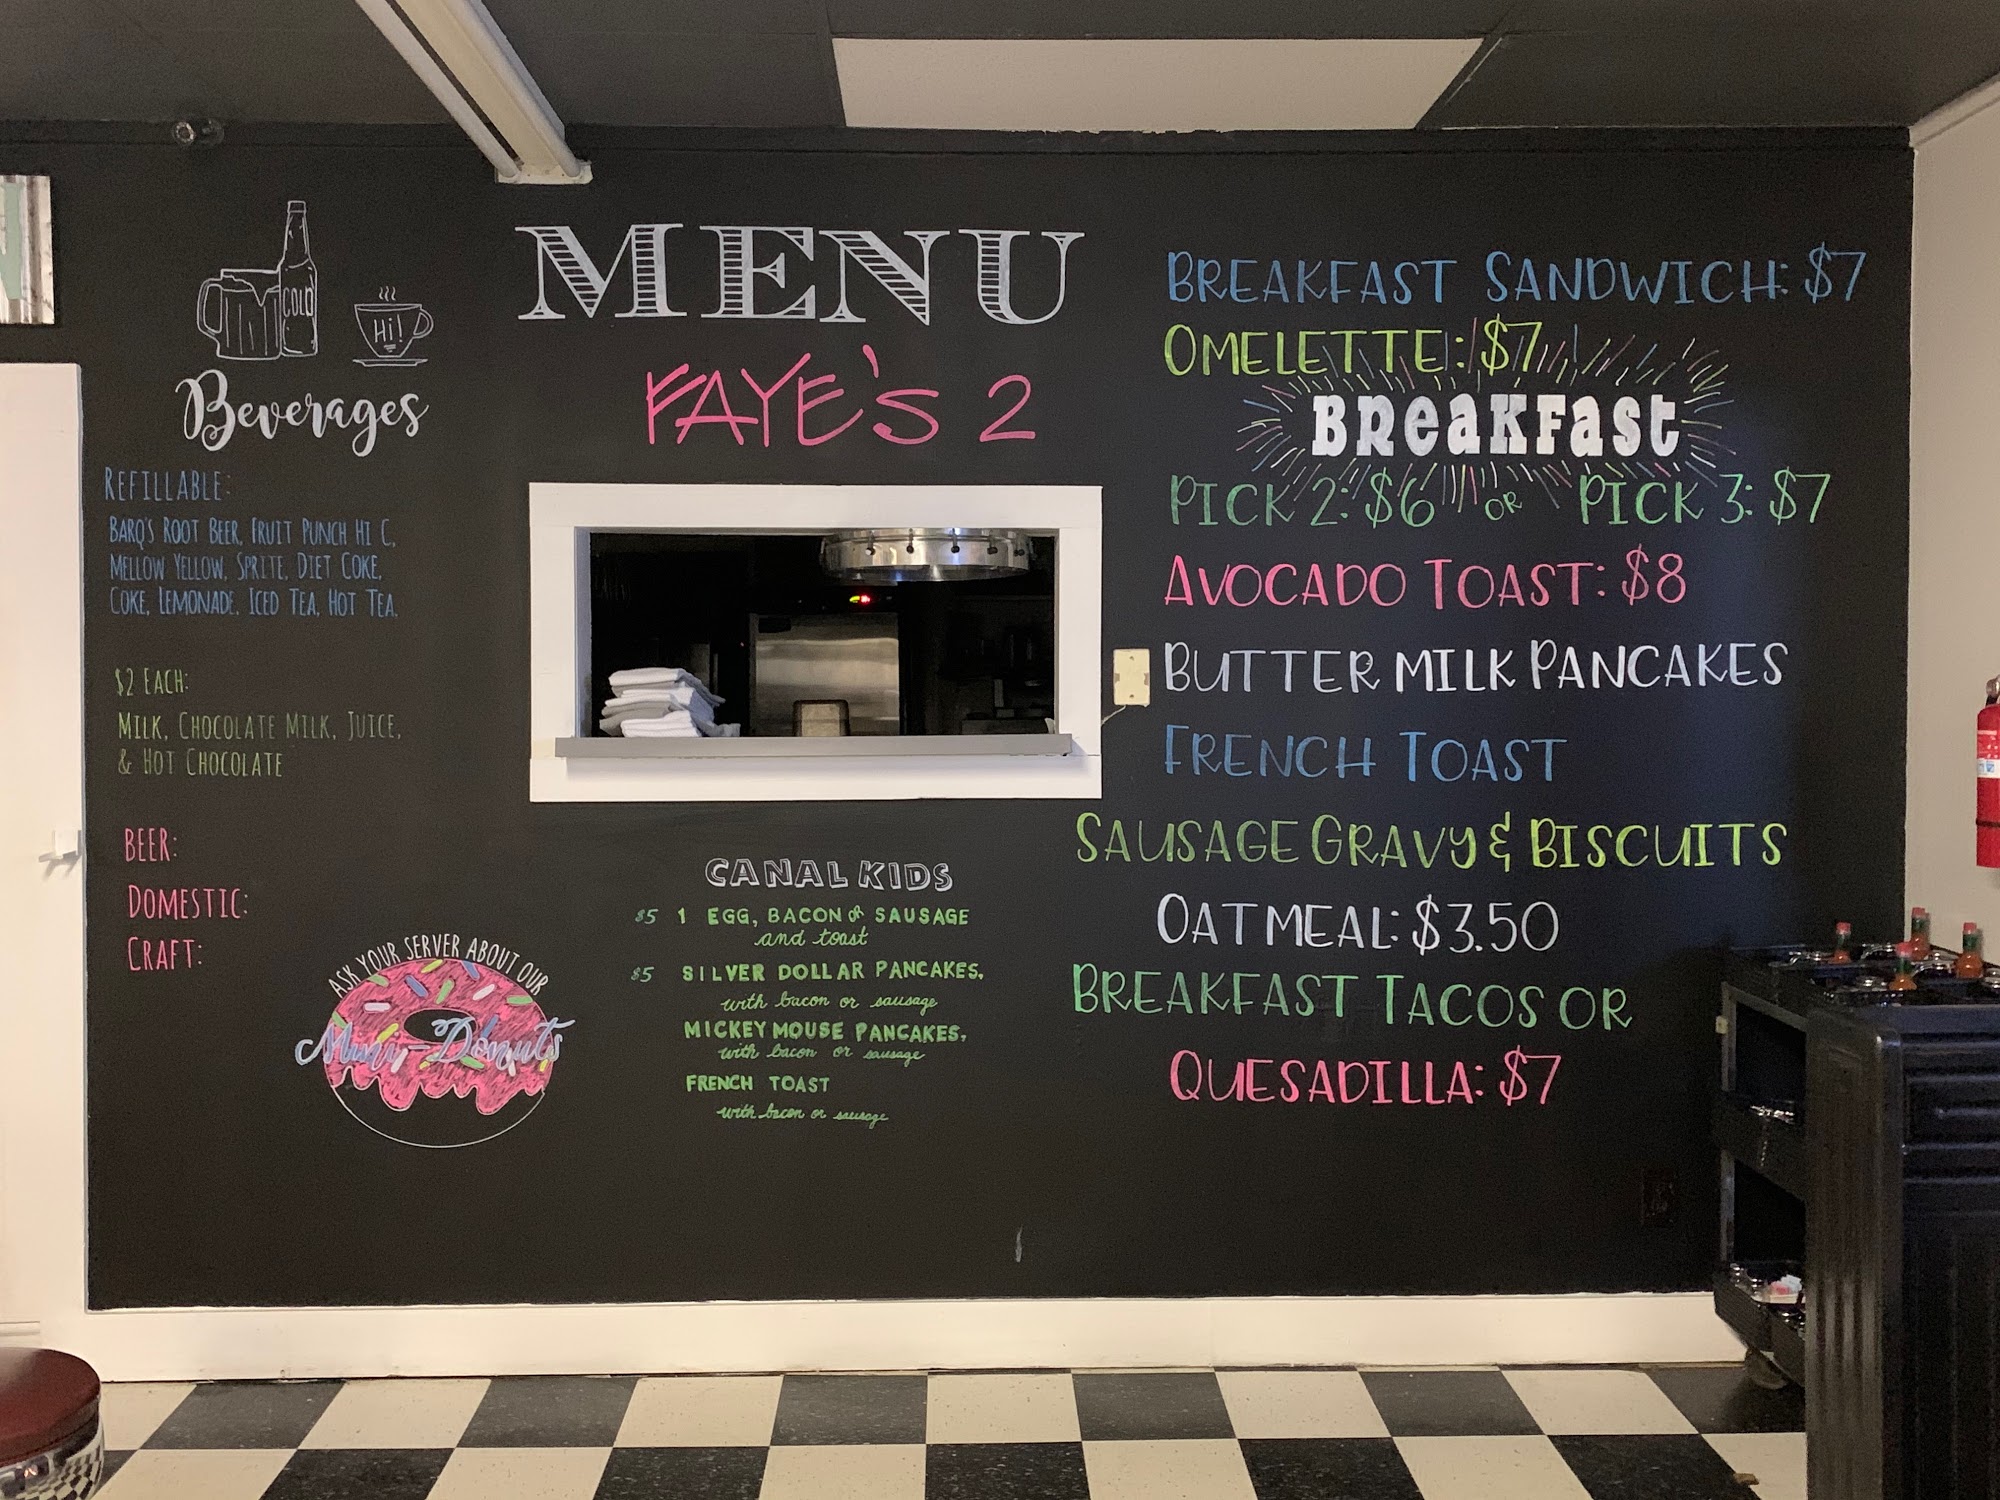 COLD
Hi!
Beverages
REFILLABLE:
BARQ'S ROOT BEER, FRUIT PUNCH HI C,
MELLOW YELLOW, SPRITE, DIET COKE,
COKE, LEMONADE, ICED TEA, HOT TEA,
$2 EACH:
MILK, CHOCOLATE MILK, JUICE,
& HOT CHOCOLATE
BEER:
DOMESTIC:
CRAFT:
ASK YOUR SERVER ABOUT OUR
Mini-Donuts
MENU
FAYE'S 2
CANAL KIDS
$5 1 EGG, BACON or SAUSAGE
and toast
$5 SILVER DOLLAR PANCAKES,
with bacon or sausage
MICKEY MOUSE PANCAKES,
with bacon or sausage
FRENCH TOAST
with bacon or sausage
BREAKFAST SANDWICH: $7
OMELETTE: $7
BReaKFast
PICK 2: $6 OR PICK 3: $7
AVOCADO TOAST: $8
BUTTER MILK PANCAKES
FRENCH TOAST
SAUSAGE GRAVY & BISCUITS
OATMEAL: $3.50
BREAKFAST TACOS OR
QUESADILLA: $7